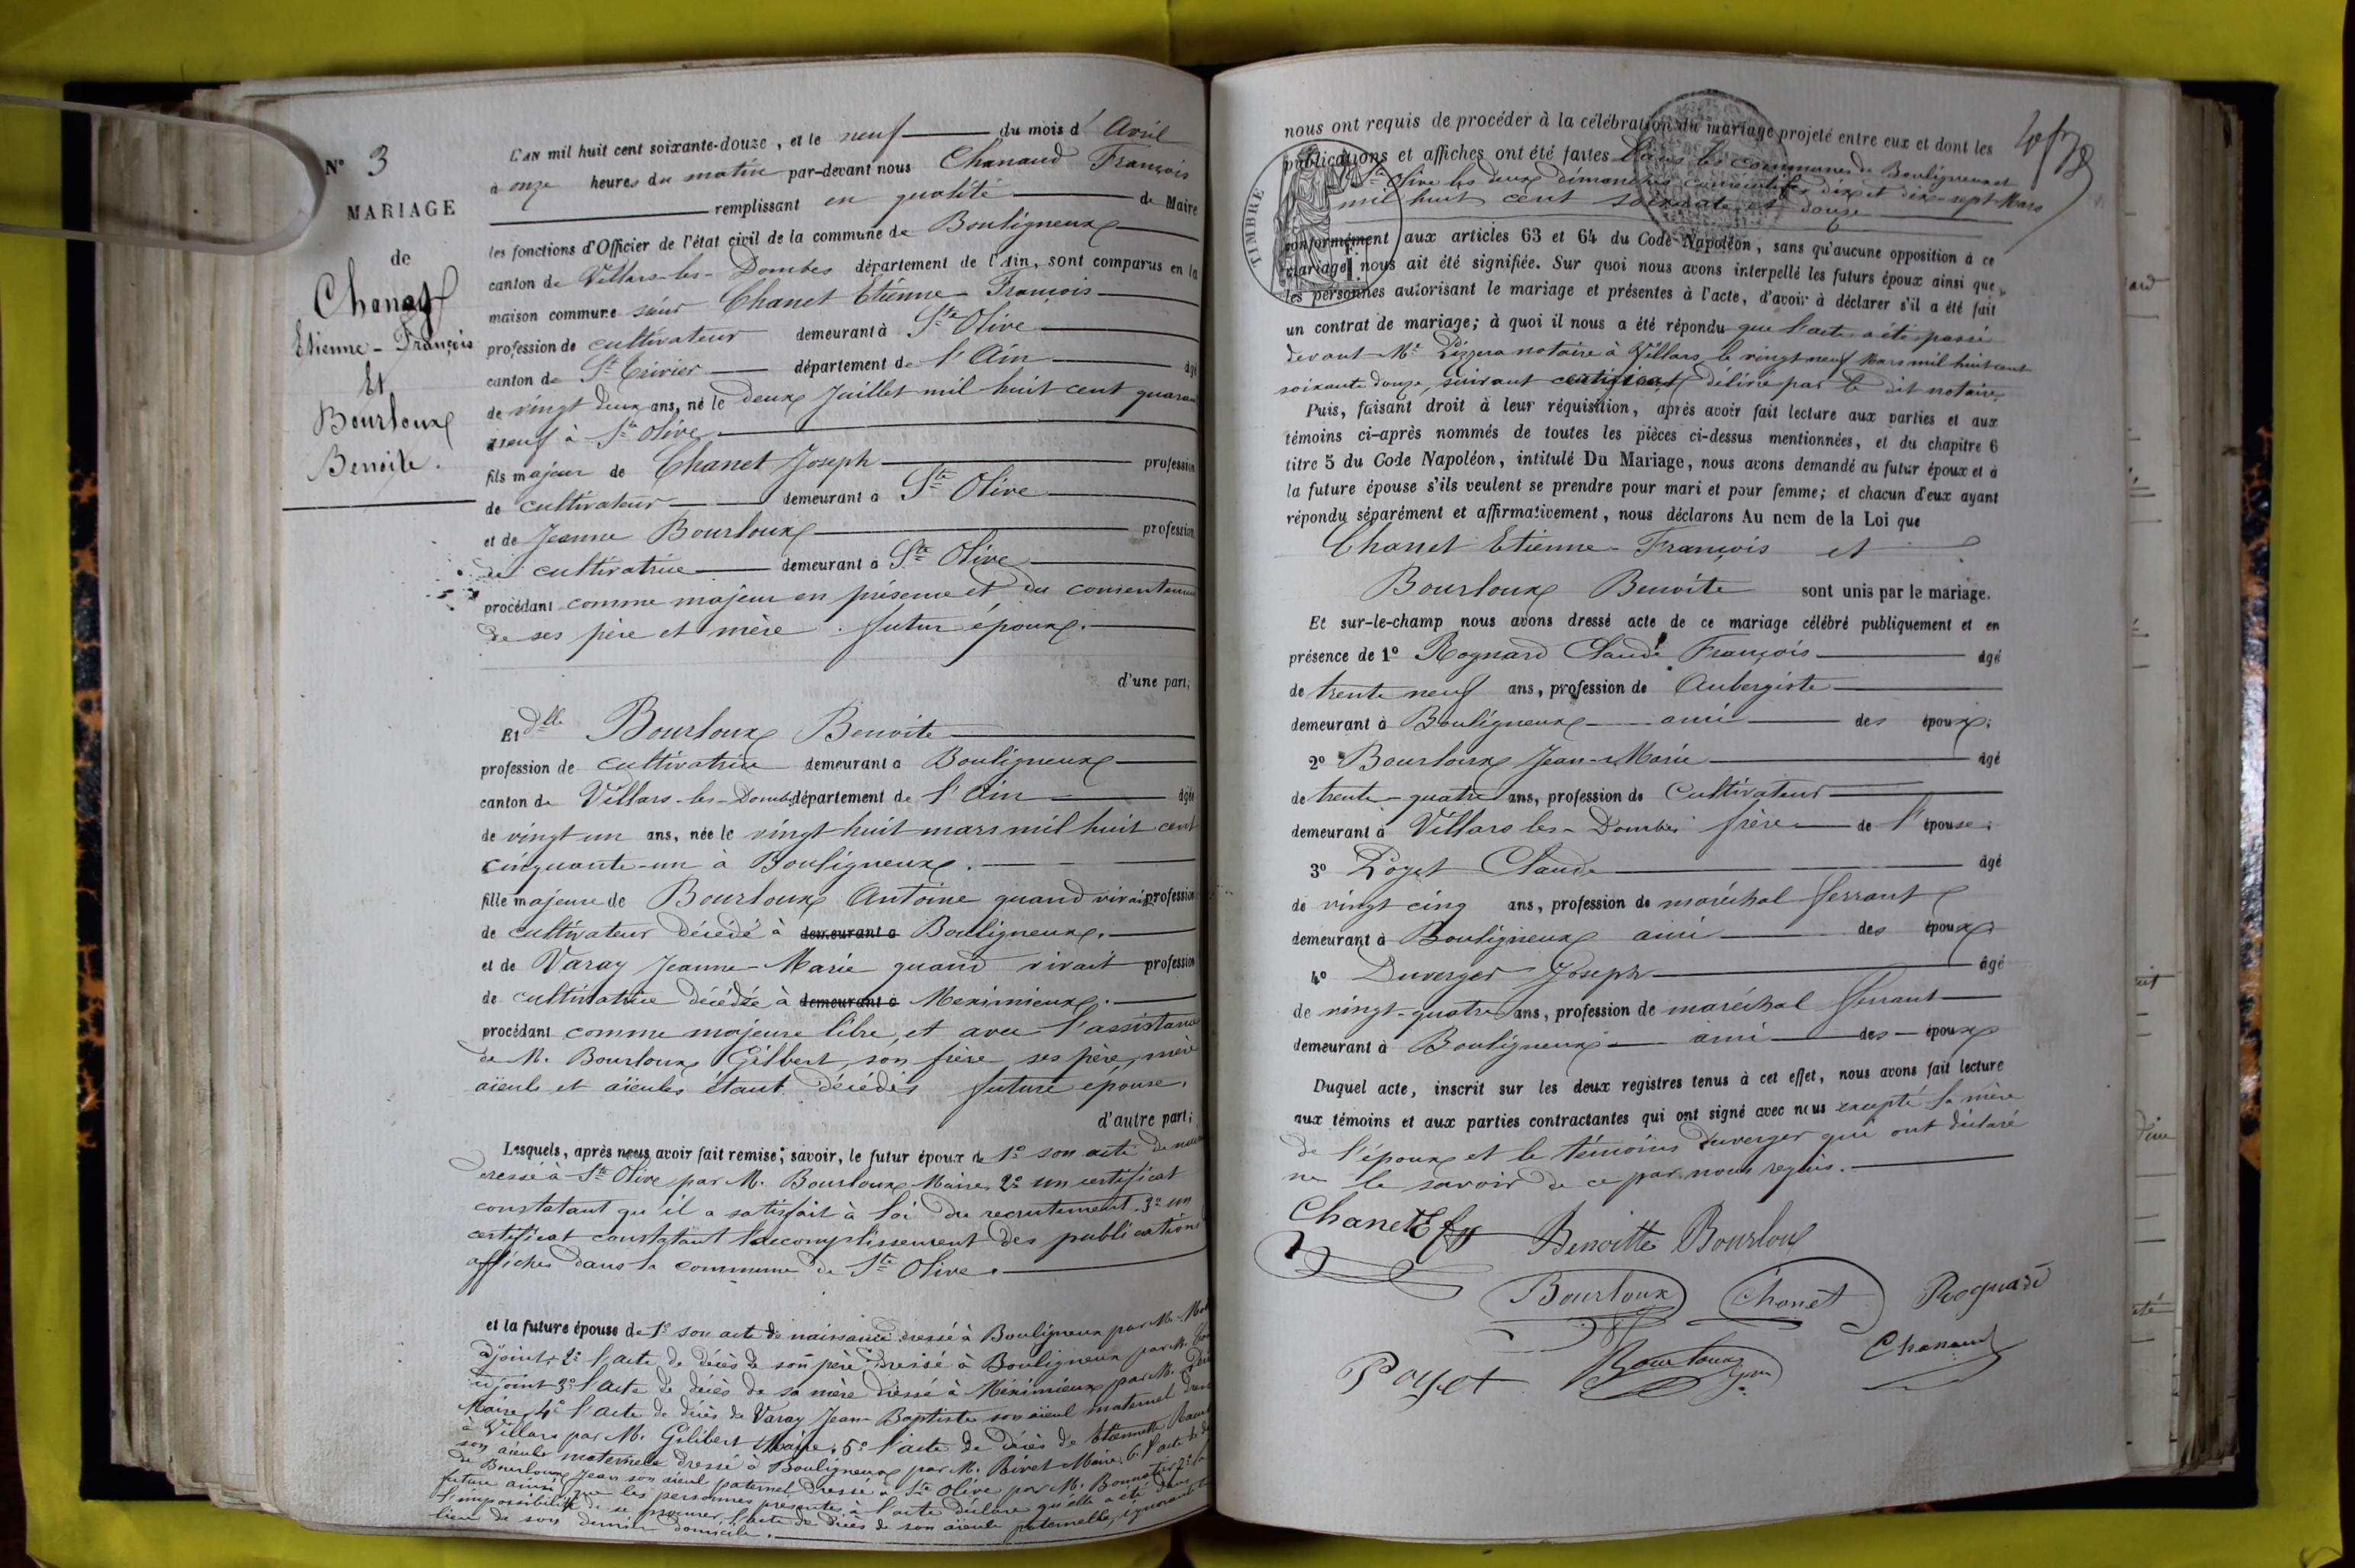 N° 3
MARIAGE
de
Chanet
Etienne-François
Et
Bourloux
Benoite.
L'AN mil huit cent soixante-douze, et le neuf du mois d' Avril
à onze heures du matin par-devant nous Chanaud François
remplissant en qualité de Maire
les fonctions d'Officier de l'état civil de la commune de Bouligneux
canton de Villars-les-Dombes département de l'Ain, sont comparus en la
maison commune sieur Chanet Etienne François
profession de cultivateur demeurant à Ste Olive
canton de St Trivier département de l'Ain âgé
de vingt deux ans, né le deux Juillet mil huit cent quaran
neuf à Ste Olive
fils majeur de Chanet Joseph profession
de cultivateur demeurant à Ste Olive
et de Jeanne Bourloux profession
de cultivatrice demeurant à Ste Olive
procédant comme majeur en présence et du consentement
de ses père et mère. futur époux.
d'une part;
Et dlle Bourloux Benoite
profession de cultivatrice demeurant à Bouligneux
canton de Villars-les-Dombes département de l'Ain âgée
de vingt un ans, née le vingt huit mars mil huit cent
cinquante-un à Bouligneux.
fille majeure de Bourloux Antoine quand vivait profession
de cultivateur décédé à demeurant à Bouligneux.
et de Varay Jeanne-Marie quand vivait profession
de cultivatrice décédée à demeurant à Meximieux.
procédant comme majeure libre, et avec l'assistance
de M. Bourloux Gilbert, son frère, ses père, mère
aïeuls et aïeules étant décédés future épouse.
d'autre part;
Lesquels, après nous avoir fait remise; savoir, le futur époux de 1° son acte de
dressé à Ste Olive par M. Bourloux Maire, 2° un certificat
constatant qu'il a satisfait à loi du recrutement. 3° un
certificat constatant l'accomplissement des publications
affiches dans la commune de Ste Olive.
et la future épouse de 1° son acte de naissance dressé à Bouligneux par M.
adjoint, 2° l'acte de décès de son père dressé à Bouligneux par M.
adjoint 3° l'acte de décès de sa mère dressé à Méximieux par M.
Maire, 4° l'acte de décès de Varay Jean-Baptiste son aïeul maternel
à Villars par M. Gilibert Maire, 5° l'acte de décès de Etiennette
son aïeule maternelle dressé à Bouligneux par M. Rivet Maire, 6° l'acte de
de Bourloux Jean son aïeul paternel dressé à Ste Olive par M.
future ainsi que les personnes présentes à l'acte déclare qu'elle a été dans
l'impossibilité de se procurer l'acte de décès de son aïeule paternelle, ignorant le
lieu de son dernier domicile.
nous ont requis de procéder à la célébration du mariage projeté entre eux et dont les
publications et affiches ont été faites dans les communes de Bouligneux et
Ste Olive les deux dimanches consécutifs dix et dix-sept Mars
mil huit cent soixante et douze
TIMBRE
conformément aux articles 63 et 64 du Code Napoléon, sans qu'aucune opposition à ce
mariage nous ait été signifiée. Sur quoi nous avons interpellé les futurs époux ainsi que
les personnes autorisant le mariage et présentes à l'acte, d'avoir à déclarer s'il a été fait
un contrat de mariage; à quoi il nous a été répondu que l'acte a été passé
devant Me notaire à Villars le vingt neuf Mars mil huit cent
soixante douze, suivant certificat délivré par le dit notaire
Puis, faisant droit à leur réquisition, après avoir fait lecture aux parties et aux
témoins ci-après nommés de toutes les pièces ci-dessus mentionnées, et du chapitre 6
titre 5 du Code Napoléon, intitulé Du Mariage, nous avons demandé au futur époux et à
la future épouse s'ils veulent se prendre pour mari et pour femme; et chacun d'eux ayant
répondu séparément et affirmativement, nous déclarons Au nom de la Loi que
Chanet Etienne-François et
Bourloux Benoite sont unis par le mariage.
Et sur-le-champ nous avons dressé acte de ce mariage célébré publiquement et en
présence de 1° Rognard Claude François âgé
de trente neuf ans, profession de Aubergiste
demeurant à Bouligneux ami des époux;
2° Bourloux Jean-Marie âgé
de trente-quatre ans, profession de Cultivateur
demeurant à Villars les-Dombes frère de l'épouse;
3° Poyet Claude âgé
de vingt cinq ans, profession de maréchal ferrant
demeurant à Bouligneux ami des époux
4° Duverger Joseph âgé
de vingt-quatre ans, profession de maréchal ferrant
demeurant à Bouligneux ami des époux
Duquel acte, inscrit sur les deux registres tenus à cet effet, nous avons fait lecture
aux témoins et aux parties contractantes qui ont signé avec nous excepté la mère
de l'époux et le témoins Duverger qui ont déclaré
ne le savoir de ce par nous requis.
Chanet
Benoitte Bourloux
Bourloux
Chanet
Rognard
Poyet
Bourloux
Chanaud